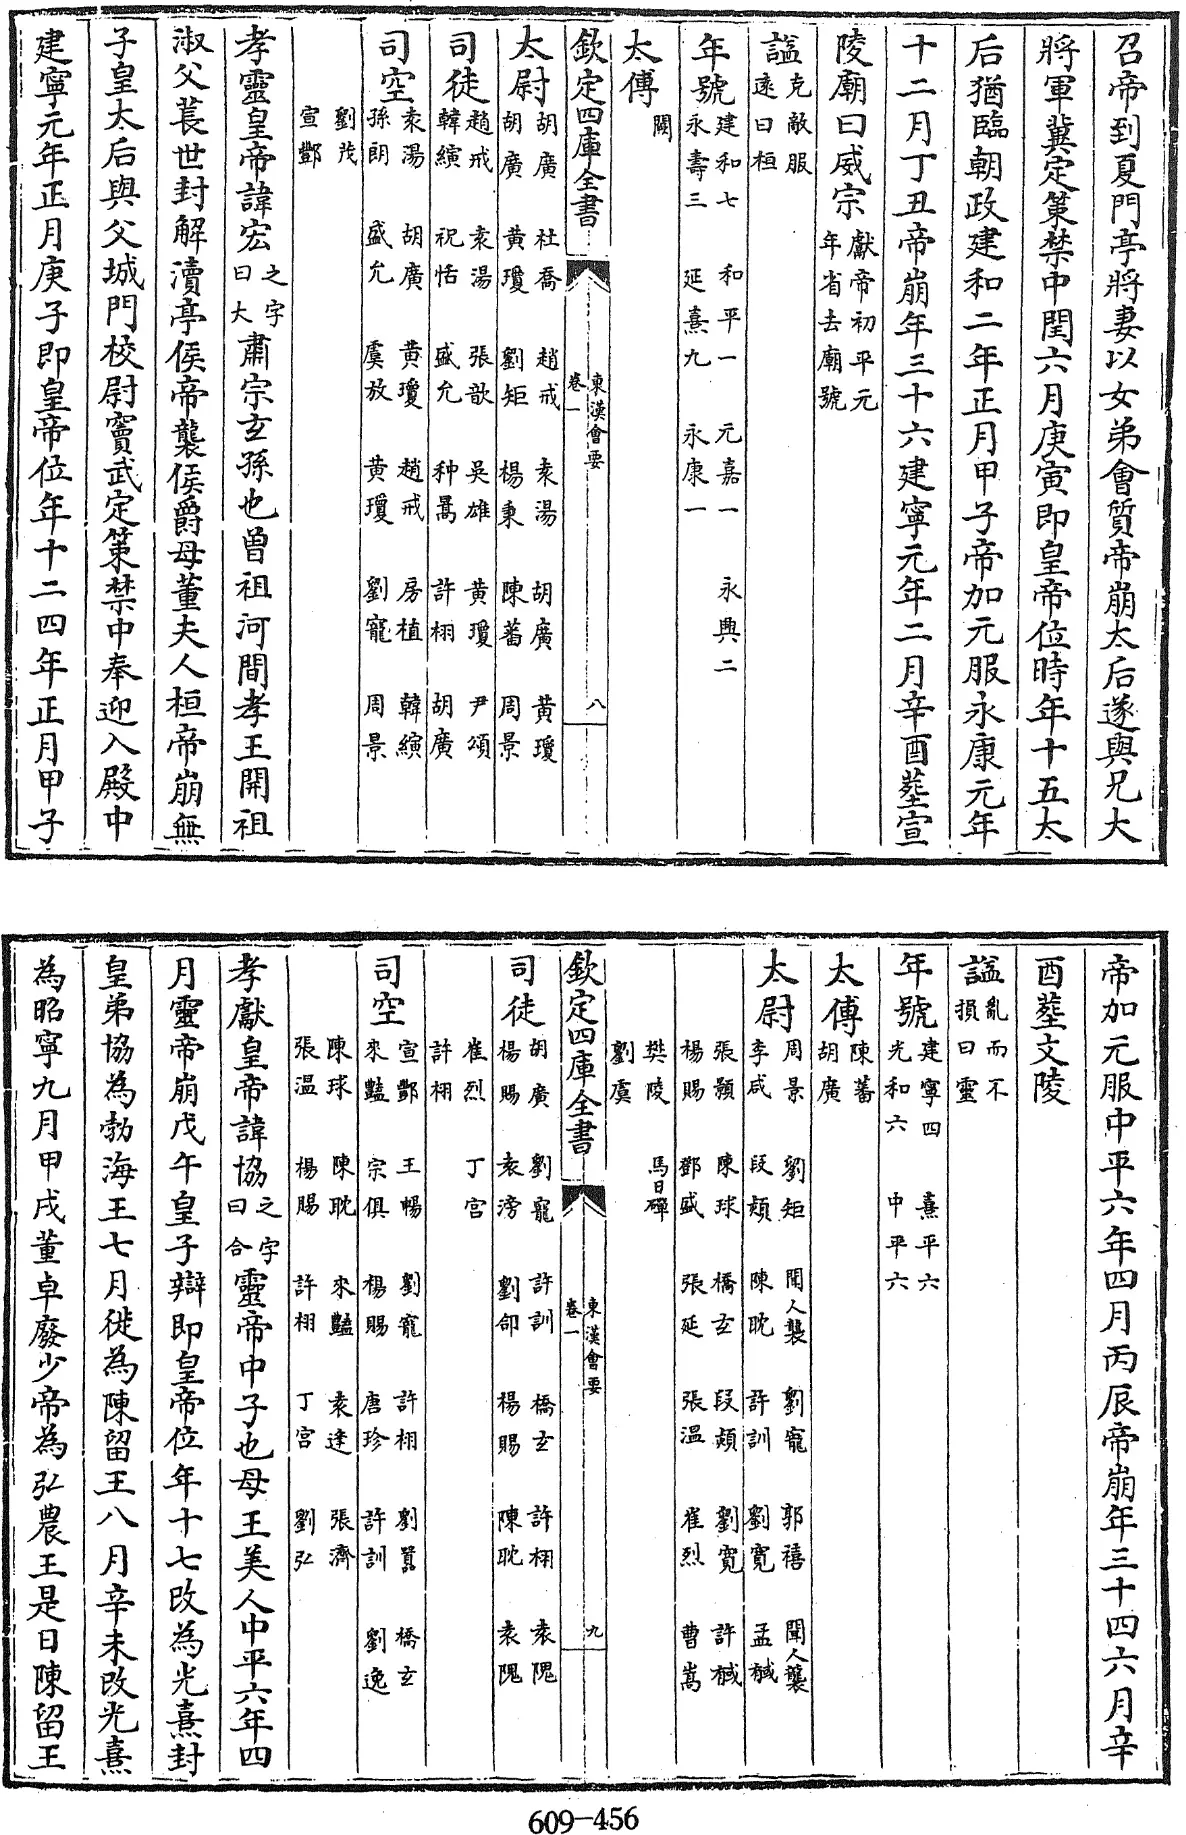 召帝到夏門亭將妻以女弟會質帝崩太后遂與兄大
將軍冀定策禁中閏六月庚寅即皇帝位時年十五太
后猶臨朝政建和二年正月甲子帝加元服永康元年
十二月丁丑帝崩年三十六建寧元年二月辛酉塟宣
陵廟曰威宗獻帝初平元年省去廟號
諡克敵服遠曰桓
年號建和七 和平一 元嘉一 永興二
永壽三 延熹九 永康一
太傅闕
欽定四庫全書 東漢會要 卷一 八
太尉胡廣 杜喬 趙戒 袁湯 胡廣 黃瓊
胡廣 黃瓊 劉矩 楊秉 陳蕃 周景
司徒趙戒 袁湯 張歆 吳雄 黃瓊 尹頌
韓縯 祝恬 盛允 种暠 許栩 胡廣
司空袁湯 胡廣 黃瓊 趙戒 房植 韓縯
孫朗 盛允 虞放 黃瓊 劉寵 周景
劉茂
宣酆
孝靈皇帝諱宏之字曰大肅宗玄孫也曾祖河間孝王開祖
淑父萇世封解瀆亭侯帝襲侯爵母董夫人桓帝崩無
子皇太后與父城門校尉竇武定策禁中奉迎入殿中
建寧元年正月庚子即皇帝位年十二四年正月甲子
帝加元服中平六年四月丙辰帝崩年三十四六月辛
酉塟文陵
諡亂而不損曰靈
年號建寧四 熹平六
光和六 中平六
太傅陳蕃
胡廣
太尉周景 劉矩 聞人襲 劉寵 郭禧 聞人襲
李咸 段熲 陳耽 許訓 劉寬 孟戫
張顥 陳球 橋玄 段熲 劉寬 許戫
楊賜 鄧盛 張延 張溫 崔烈 曹嵩
樊陵 馬日磾
劉虞
欽定四庫全書 東漢會要 卷一 九
司徒胡廣 劉寵 許訓 橋玄 許栩 袁隗
楊賜 袁滂 劉郃 楊賜 陳耽 袁隗
崔烈 丁宮
許栩
司空宣酆 王暢 劉寵 許栩 劉囂 橋玄
來豔 宗俱 楊賜 唐珍 許訓 劉逸
陳球 陳耽 來豔 袁逢 張濟
張溫 楊賜 許栩 丁宮 劉弘
孝獻皇帝諱協之字曰合靈帝中子也母王美人中平六年四
月靈帝崩戊午皇子辯即皇帝位年十七改為光熹封
皇弟協為勃海王七月徙為陳留王八月辛未改光熹
為昭寧九月甲戌董卓廢少帝為弘農王是日陳留王
609-456